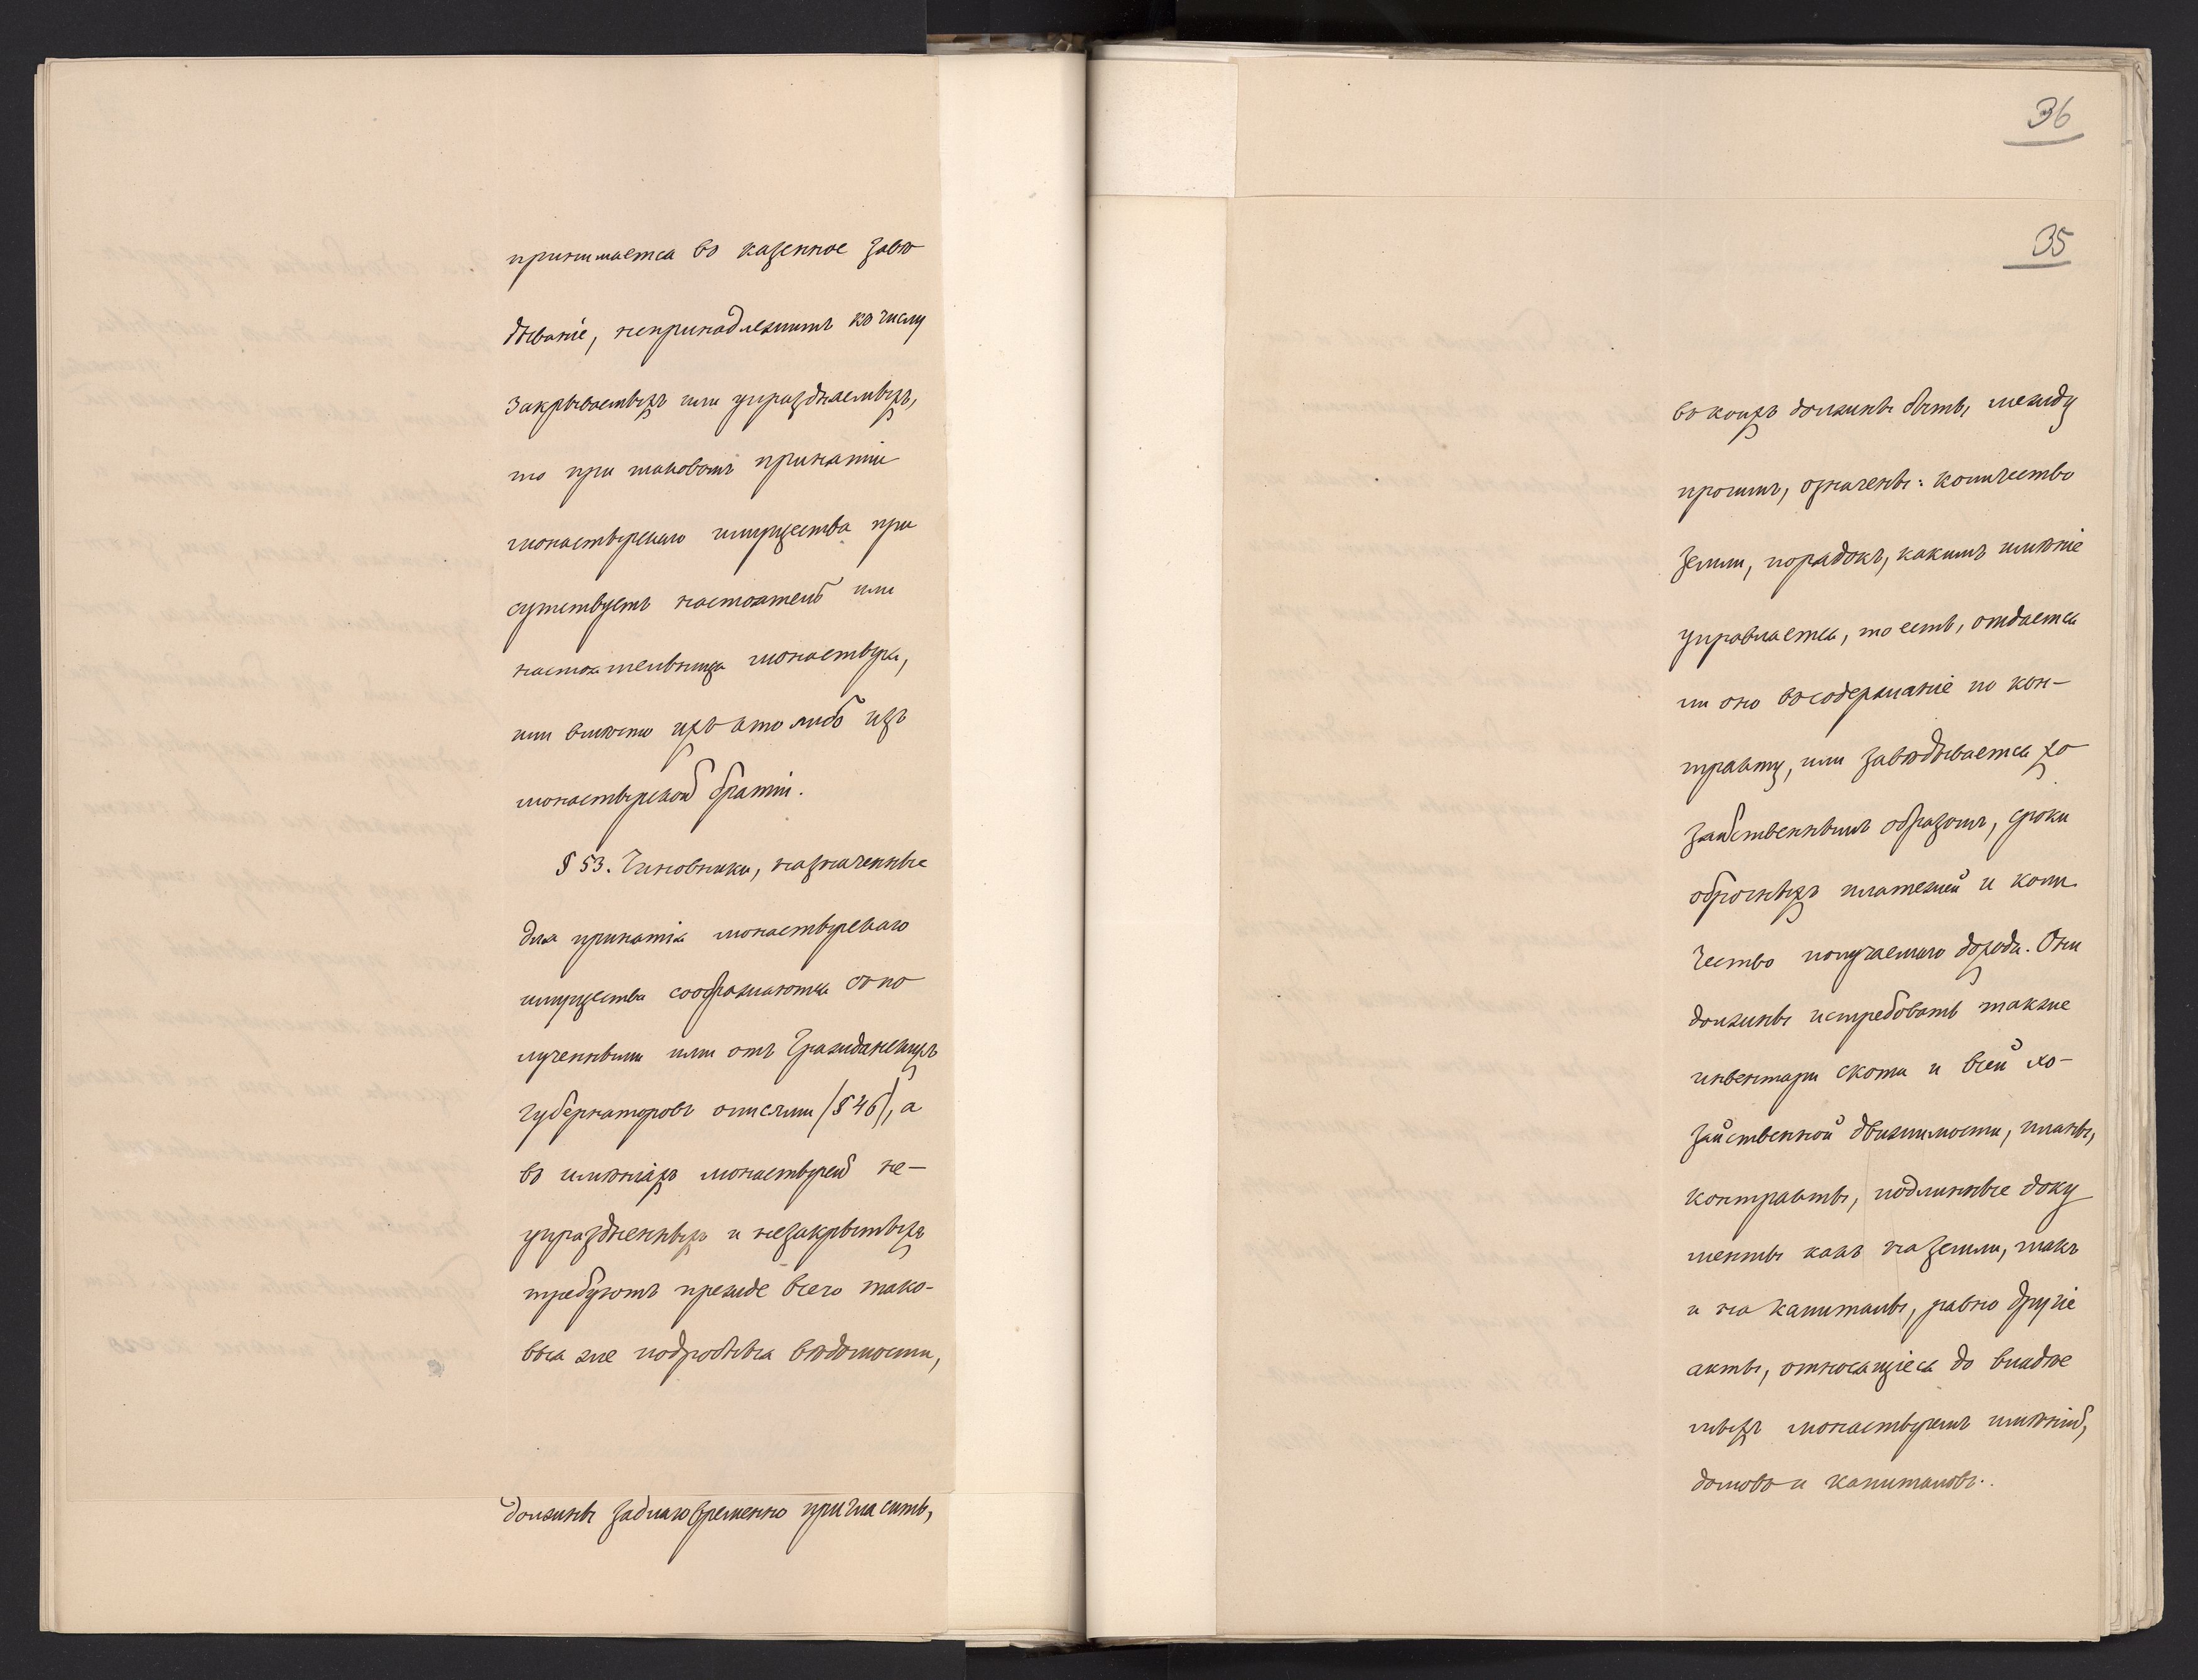 принимается въ казенное завѣ
дываніе, непринадлежитъ къ числу
закрываемыхъ или упраздняемыхъ,
то при таковомъ принятіи
монастырскаго имущества при
сутствуетъ настоятель или
настоятельница монастыря,
или вмѣсто ихъ кто либо изъ
монастырской братіи.
§ 53. Чиновники, назначенные
для принятія монастырскаго
имущества соображаются съ по
лученными или отъ Гражданскихъ
Губернаторовъ описями (§ 46), а
въ имѣніяхъ монастырей не-
упраздненныхъ и незакрытыхъ
требуютъ прежде всего тако-
выя же подробныя вѣдомости,
должны заблаговременно пригласить,
36
35
въ коихъ должны быть, между
прочимъ, означены: количество
земли, порядокъ, какимъ имѣніе
управляется, то есть, отдается
ли оно въ содержаніе по кон-
тракту, или завѣдывается хо
зяйственнымъ образомъ, сроки
оброчныхъ платежей и коли
чество получаемаго дохода. Они
должны истребовать также
инвентари скота и всей хо-
зяйственной движимости, планы,
контракты, подлинные доку
менты какъ на земли, такъ
и на капиталы, равно другіе
акты, относящіеся до владѣе
мыхъ монастыремъ имѣній,
домовъ и капиталовъ.